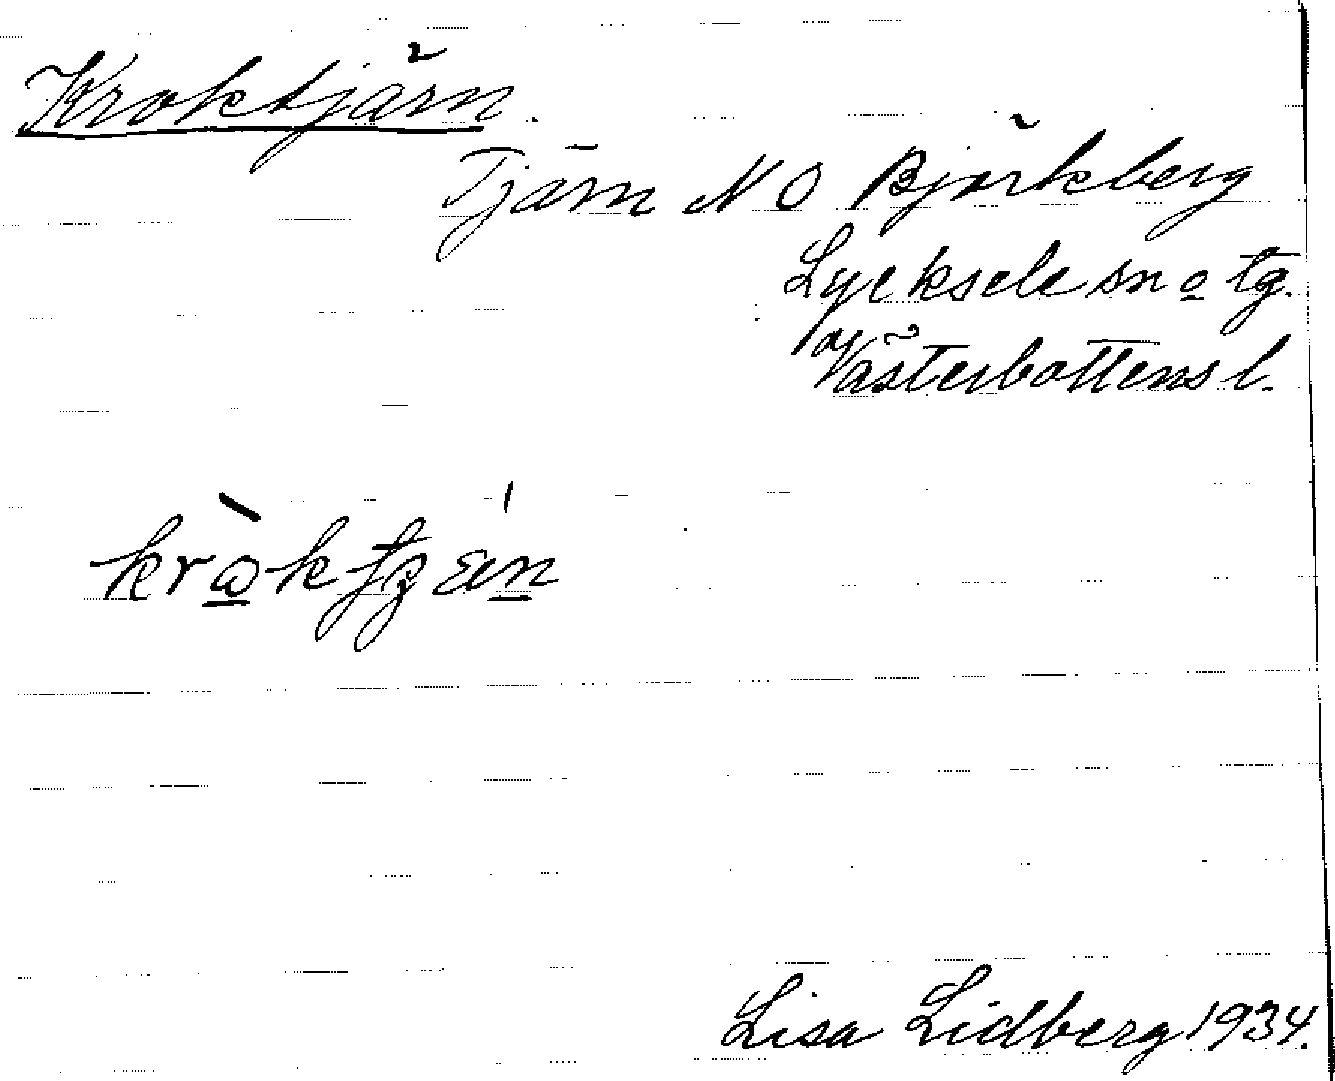 Kroktjärn.
Tjärn N O Björkberg
Lycksele sn o tg.
av Västerbottens l.
Lisa Lidberg 1934.